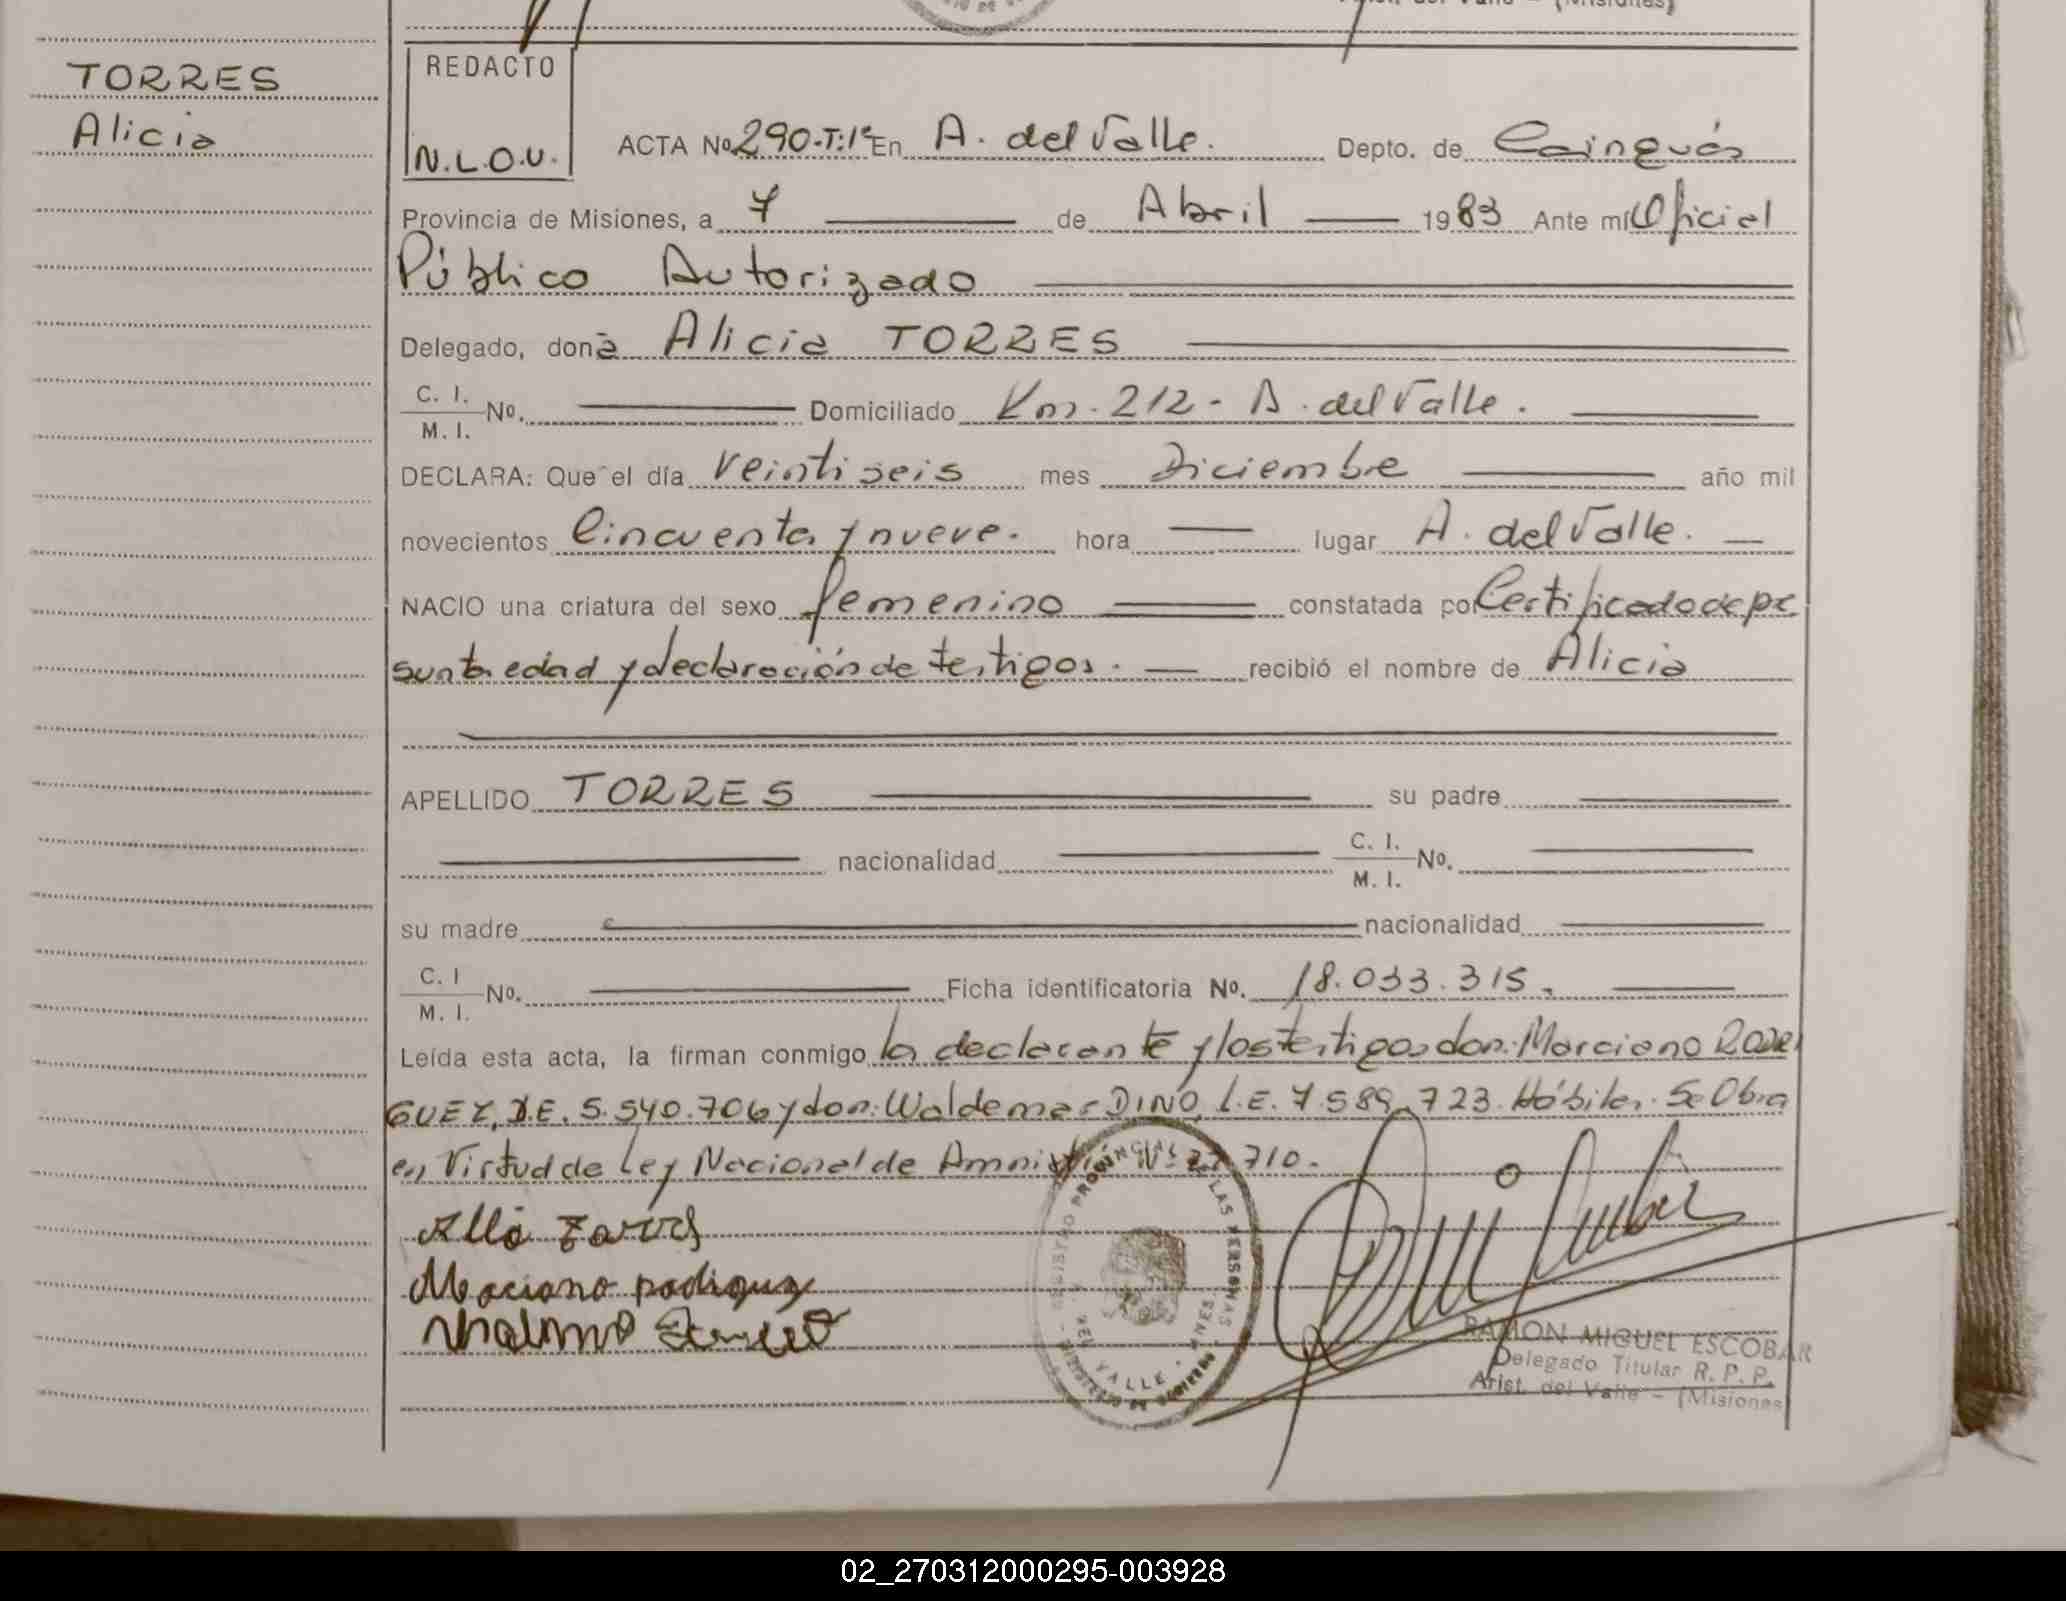 TORRES
Alicia
REDACTO
N.L.O.U.
ACTA Nº 290-T:1º En A. del Valle. Depto. de Cainguás
Provincia de Misiones, a 7 de Abril 1983 Ante mí Oficial
Público Autorizado
Delegado, doña Alicia TORRES
C. I. / M. I. Nº. Domiciliado Km. 212 - A. del Valle.
DECLARA: Que el día veintiseis mes Diciembre año mil
novecientos Cincuenta y nueve. hora lugar A. del Valle.
NACIO una criatura del sexo femenino constatada por Certificado de pre
sunta edad y declaración de testigos. recibió el nombre de Alicia
APELLIDO TORRES su padre
nacionalidad C. I. / M. I. Nº.
su madre nacionalidad
C. I / M. I. Nº. Ficha identificatoria Nº. 18.033.315.
Leída esta acta, la firman conmigo la declarante y los testigos don: Marciano RODRI
GUEZ, D.E. 5.540.706 y don: Waldemar DINO, L.E. 7.589.723. Hábiles. Se Obra
en Virtud de Ley Nacional de Amnistía Nº 22.710.
Marciano rodiguez
REGISTRO PROVINCIAL DE LAS PERSONAS
A. DEL VALLE - MNES.
MINISTERIO DE GOBIERNO
RAMON MIGUEL ESCOBAR
Delegado Titular R. P. P.
Arist. del Valle - (Misiones)
02_270312000295-003928